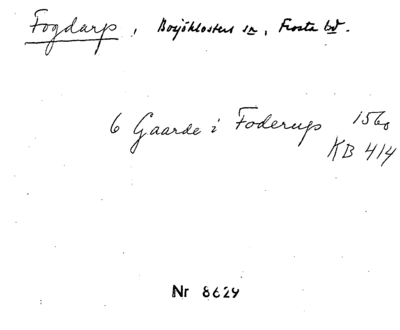 Fogdarp, Bosjöklosters sn, Frosta hd.
6 Gaarde i Foderup 1560
KB 414
Nr 8629